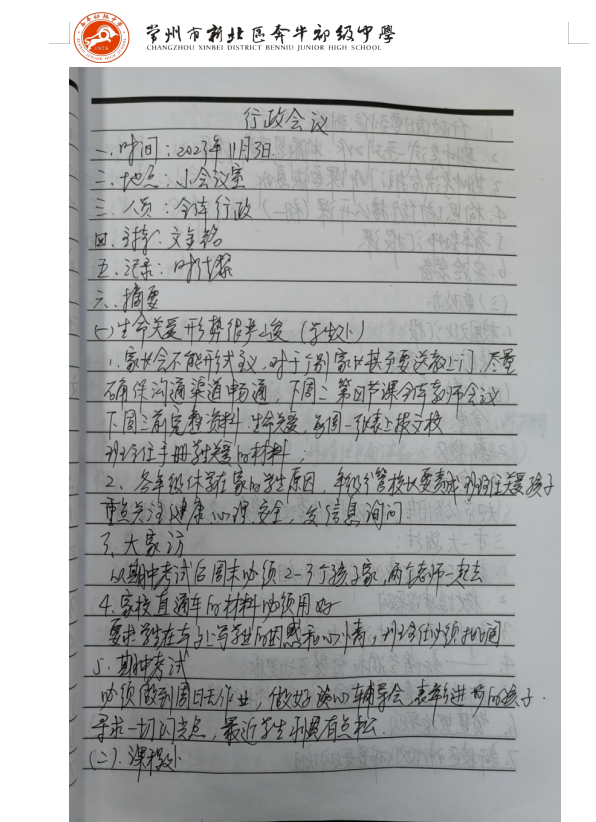 常州市新北区奔牛初级中学
CHANGZHOU XINBEI DISTRICT BENNIU JUNIOR HIGH SCHOOL
行政会议
一、时间：2023年11月3日
二、地点：小会议室
三、人员：全体行政
四、主持：文金铭
五、记录：时代黎
六、摘要
(一)生命关爱形势很严峻（学生处）
1、家长会不能形式主义，对于个别家长甚至要送教上门，尽量
确保沟通渠道畅通，下周二第四节课全体教师会议
下周三前完善资料：生命关爱，每周一张表上报交校
班主任手册学生关爱的材料；
2、各年级休学在家的学生原因，年级分管校长要责成班主任关爱孩子
重点关注健康、心理、安全，发信息询问
3、大家访
以期中考试后周末必须2-3个孩子家，两个老师一起去
4.家校直通车的材料必须用好
要求学生在车上写学业的困惑和心情，班主任必须批阅
5.期中考试
必须做到周日无作业，做好谈心辅导会，表彰进步的孩子.
寻求一切闪光点，最近学生礼貌有点松.
(二).课程处